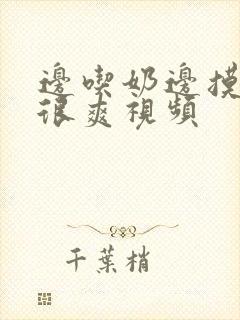 邊喫奶邊摸
很爽視頻
千葉梢